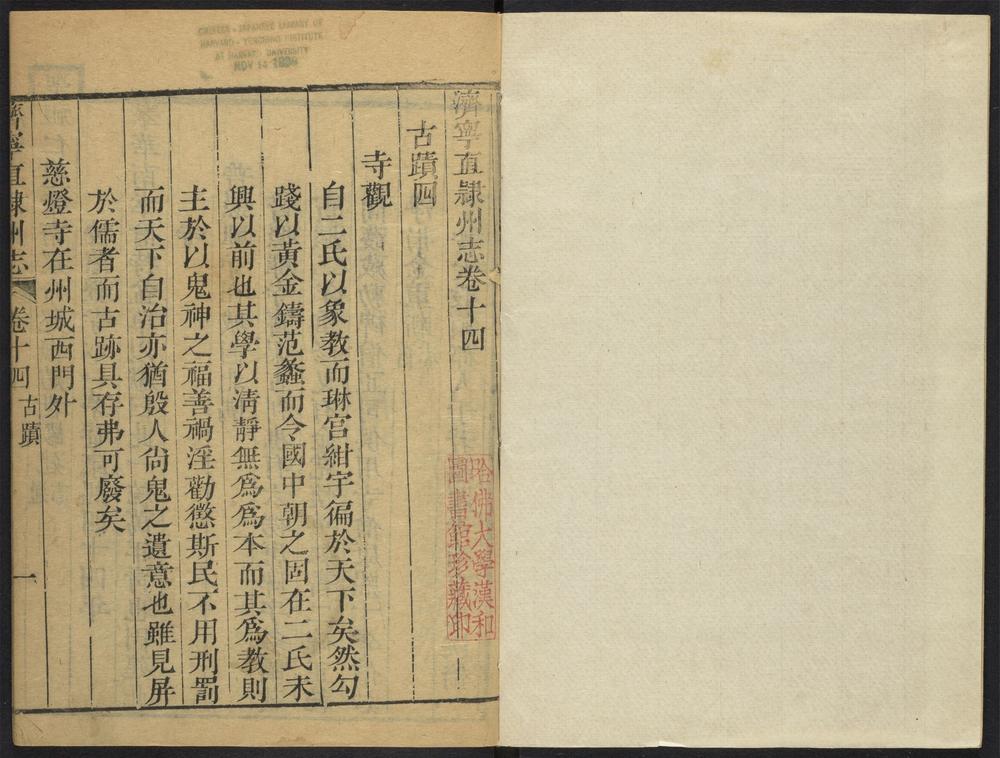 CHINESE - JAPANESE LIBRARY OF
HARVARD - YENCHING INSTITUTE
AT HARVARD UNIVERSITY
NOV 14 1936
濟寧直隸州志卷十四
哈佛大學漢和
圖書館珍藏印
古蹟四
寺觀
自二氏以象教而琳宫紺宇徧於天下矣然勾
踐以黃金鑄范蠡而令國中朝之固在二氏未
興以前也其學以淸靜無爲爲本而其爲教則
主於以鬼神之福善禍淫勸懲斯民不用刑罰
而天下自治亦猶殷人尙鬼之遺意也雖見屏
於儒者而古跡具存弗可廢矣
慈燈寺在州城西門外
濟寧直隸州志 卷十四 古蹟 一